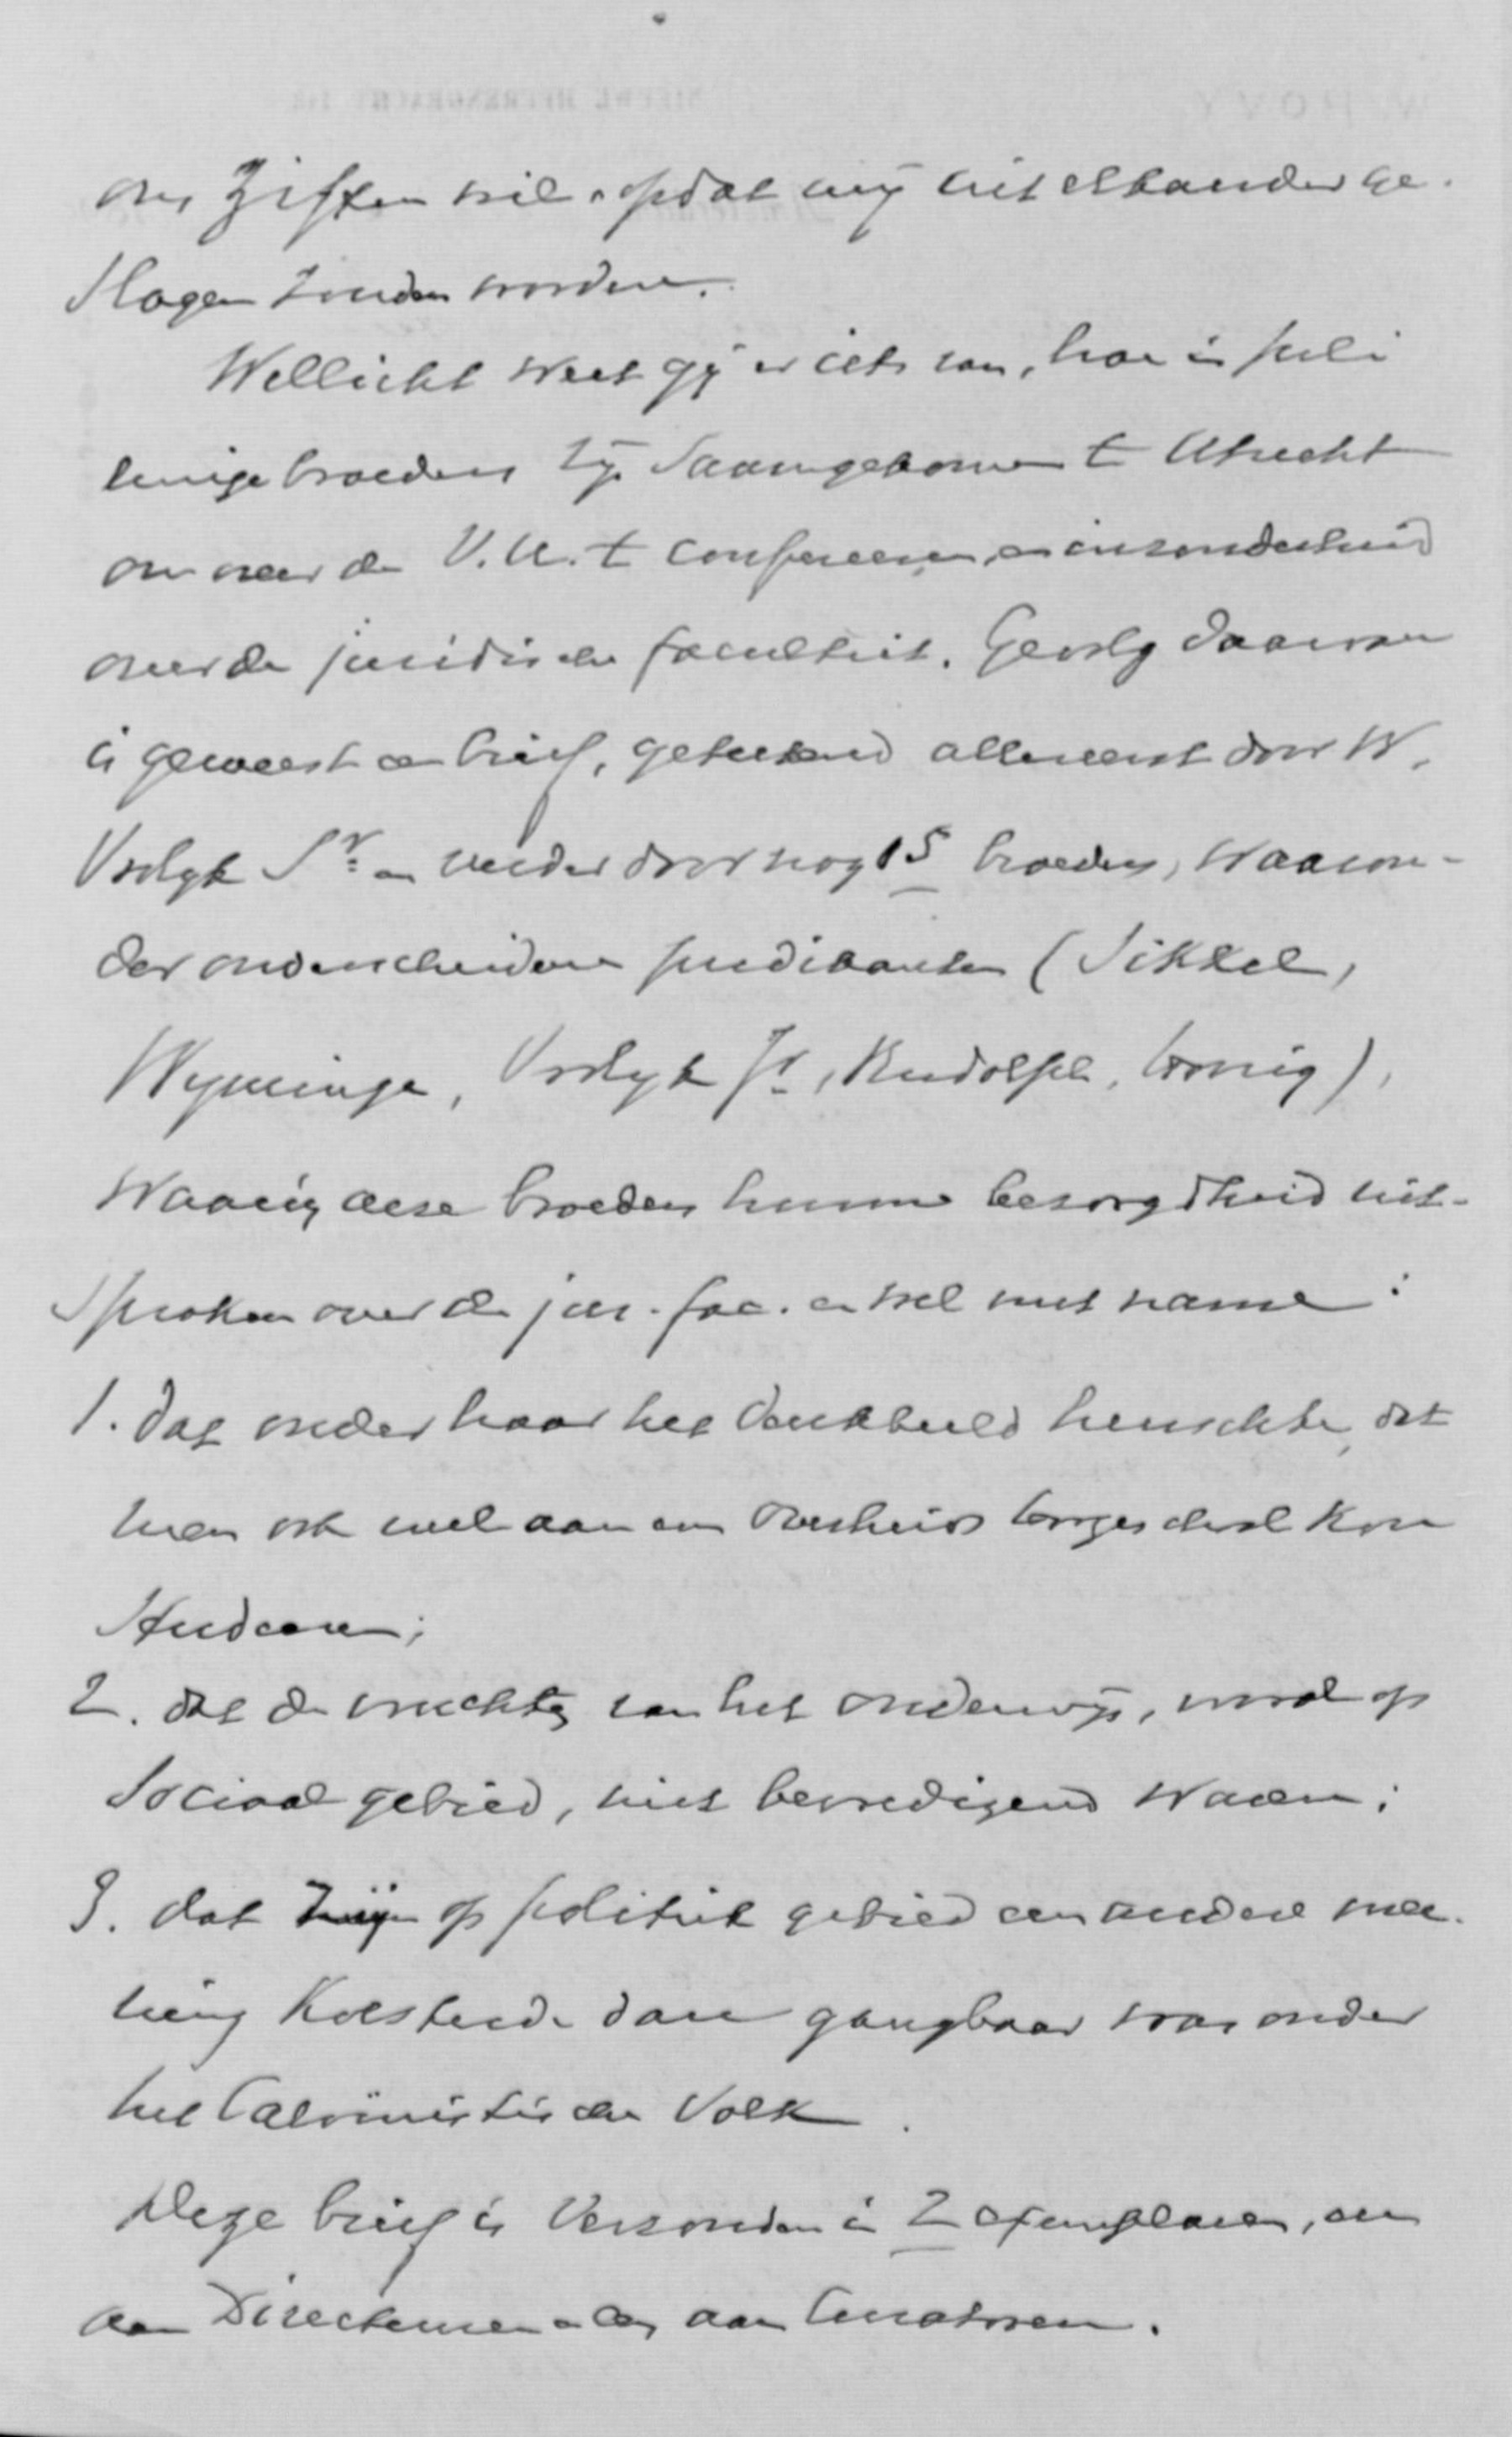 ons ziften wil, opdat wij uit elkander ge-
slagen zouden worden.
Wellicht weet gij er iets van, hoe in Juli
eenige broeders zijn saamgekomen te Utrecht
om over de V.U. te confereeren, en inzonderheid
over de juridische faculteit. Gevolg daarvan
is geweest een brief, geteekend allereerst door W.
Vrolyk Sr. en verder door nog 15 broeders, waaron-
der onderscheidene predikanten (Sikkel,
Wyminga, Vrolyk Jr, Rudolph, Honig),
waarin deze broeders hunne bezorgdheid uit-
spraken over de jur. fac. en wel met name:
1. dat onder haar het denkbeeld heerschte, dat
men ook wel aan een Overheids hoogeschool kon
studeeren;
2. dat de vruchten van het onderwijs, vooral op
sociaal gebied, niet bevredigend waren;
3. dat zij op politiek gebied een andere mee-
ning koesterde dan gangbaar was onder
het Calvinistische Volk.
Deze brief is verzonden in 2 exemplaren, een
aan Directeuren en een aan Curatoren.